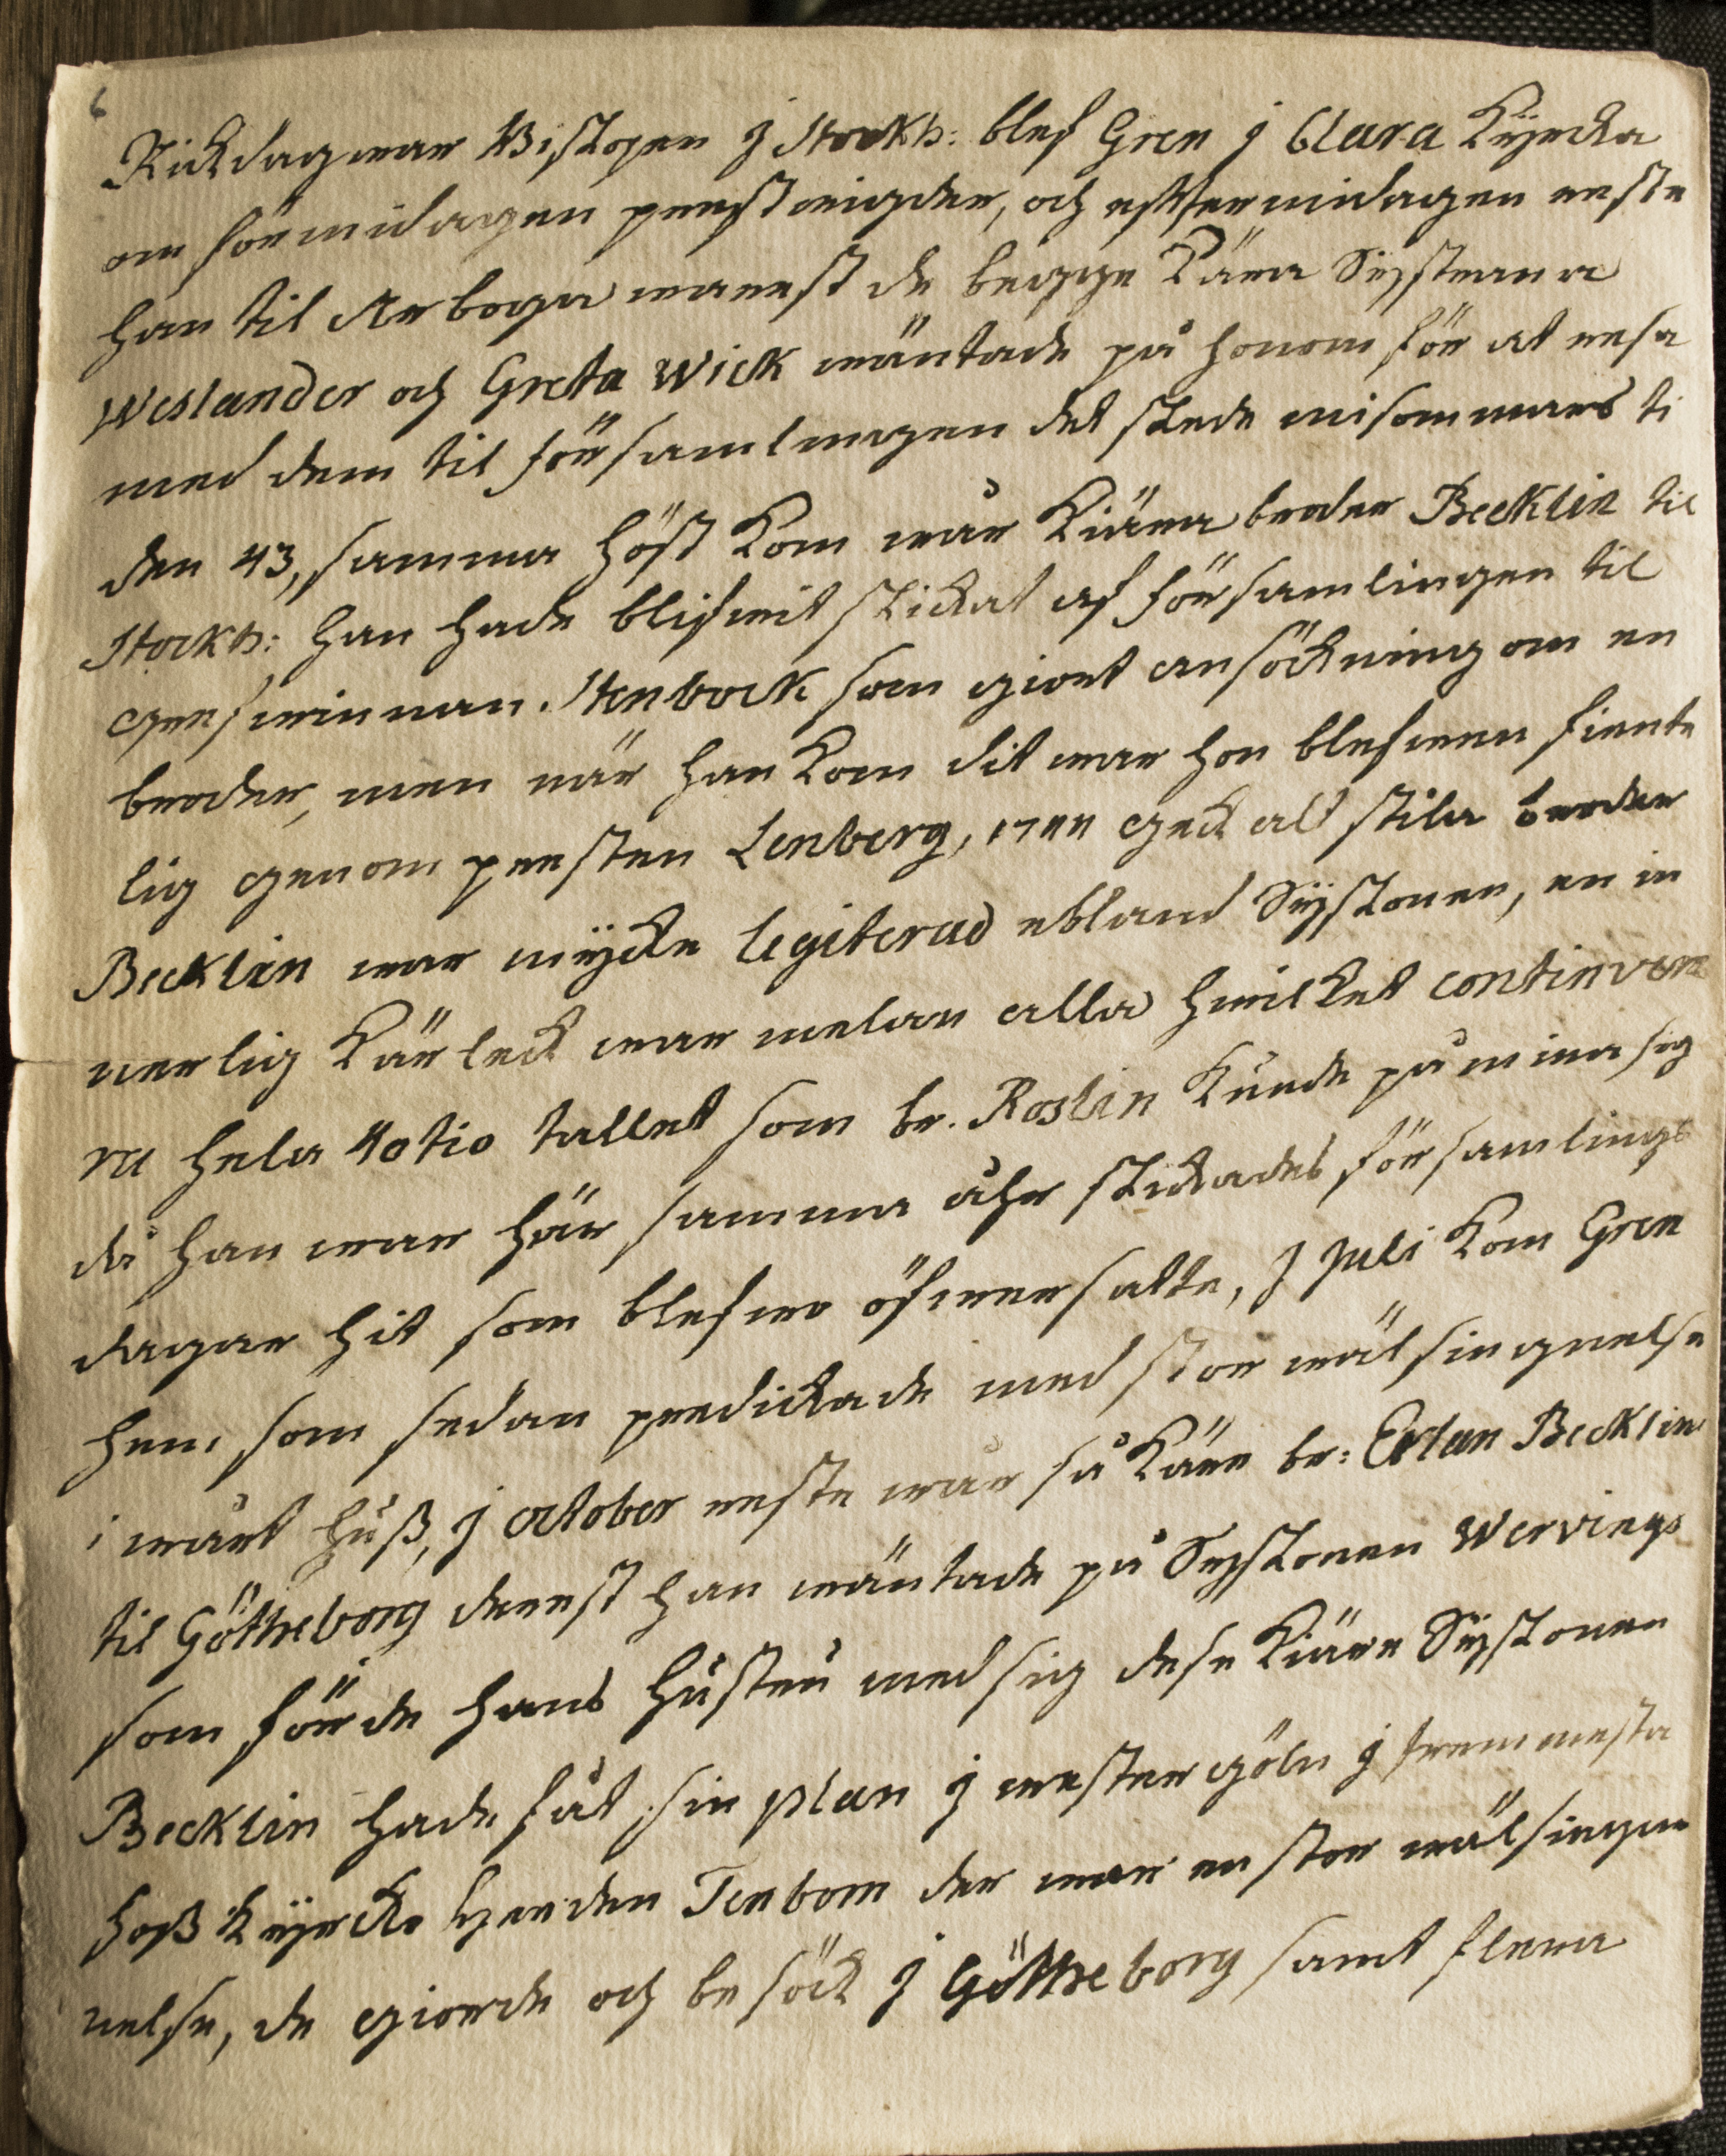 6
Rickdag war Biskopen j Stockh: blef Gren j Clara Kÿrcka
om förmidagen prestwigder, och efftermidagen reste
han til Arboga warest de begge Kära Sÿstrarna
Weslander och Greta Wick wäntade på honom för at resa
med dem til församlingen det skede misommars ti
den 43, samma höst kom wår Kiära broder Becklin til
Stockh: han hade blifwit skickat af församlingen til
grefwinnan. Stenbock som giort ansöckning om en
broder, men när han kom dit war hon blefwen fiente
lig genom presten Lenberg, 1744 geck alt stila broder
Becklin war mÿcke legiterad ibland Sÿskonen, en in
nerlig Kärleck war melan alla hwilket continvera
ra hela 40tio tallet som br. Roslin Kunde påminna sig
då han war här samma åhr skickades församlings
dagar hit som blefwo öfwersatte, J Juli kom Gren
hem som sedan predickade med stor wälsingnelse
i wårt huß, j october reste wår så Käre br: Erlan Becklin
til Götheborg derest han wäntade på Sÿskonen Wervings
som förde hans hustru med sig dese Kiäre Sÿskonen
Becklin hade fåt sin plan j westergöln j fremmesta
hoß Kÿrcko herden Tenbom der war en stor wälsingn
nelse, de giorde och besöck j Götheborg samt flera